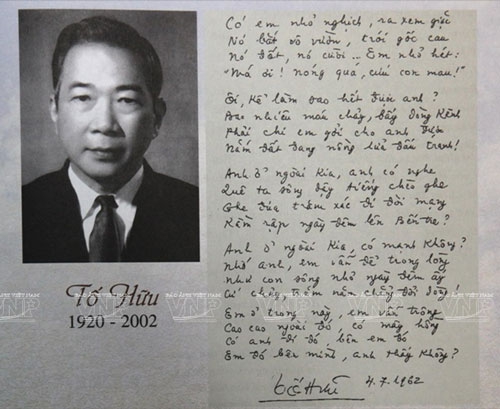 Tố Hữu
1920 - 2002
Có em nhỏ nghịch, ra xem giặc
Nó bắt vô vườn, trói gốc cau
Nó đốt, nó cười... Em nhỏ hét:
"Má ơi! nóng quá, cứu con mau!"
Ôi, kể làm sao hết được anh?
Bao nhiêu máu chảy, đầy dòng kênh
Phải chi em gởi cho anh được
Nắm đất đang nồng lửa đấu tranh!
Anh ở ngoài kia, anh có nghe
Quê ta sông dậy tiếng chèo ghe
Ghe đưa trăm xác đi đòi mạng
Rầm rập ngày đêm lên Bến tre?
Anh ở ngoài kia, có mạnh không?
Nhớ anh, em vẫn để trong lòng
Như con sông nhỏ ngày đêm ấy
Cứ chảy, trăm năm chẳng đổi dòng!
Em ở trong này, em vẫn trông
Cao cao ngoài đó, có mây hồng
Có anh đi đó, bên em đó
Em đó bên mình, anh thấy không?
Tố Hữu 4.7.1962
BÁO ẢNH VIỆT NAM
VNP
BÁO ẢNH VIỆT NAM
VNP